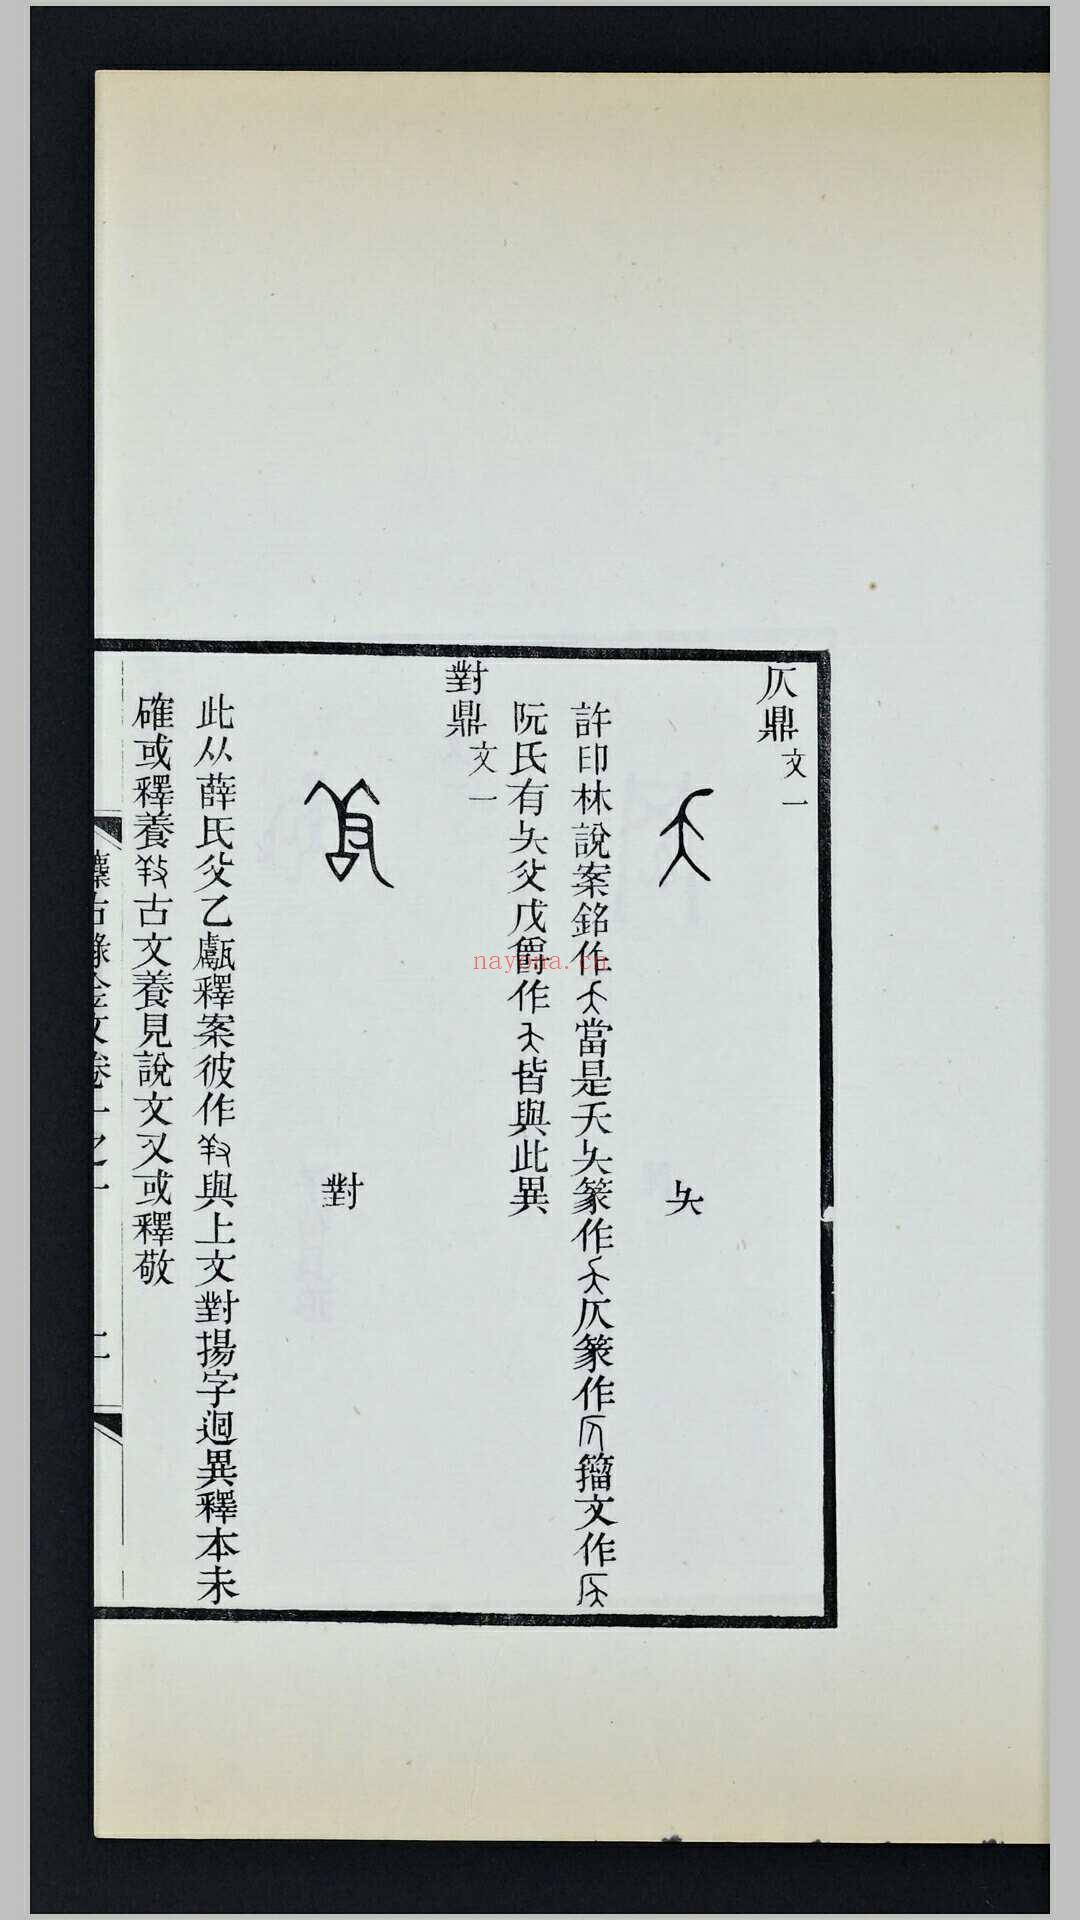 仄鼎 文一
夨
許印林說案銘作當是夭夨篆作仄篆作籀文作
阮氏有夨父戊爵作皆與此異
對鼎 文一
對
此从薛氏父乙甗釋案彼作與上文對揚字迥異釋本未
確或釋養古文養見說文又或釋敬
攗古錄金文卷一之一
二
nayona.ca